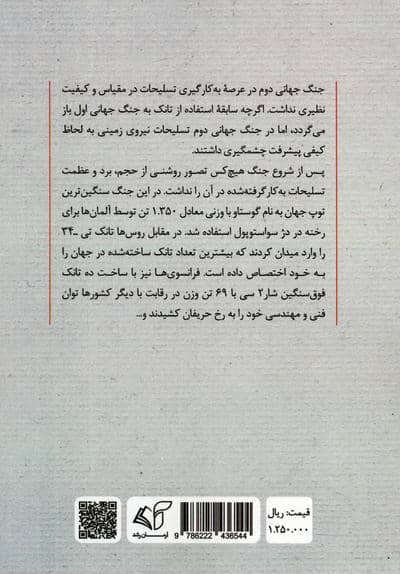 جنگ جهانی دوم در عرصهٔ به‌کارگیری تسلیحات در مقیاس و کیفیت
نظیری نداشت. اگرچه سابقهٔ استفاده از تانک به جنگ جهانی اول باز
می‌گردد، اما در جنگ جهانی دوم تسلیحات نیروی زمینی به لحاظ
کیفی پیشرفت چشمگیری داشتند.
پس از شروع جنگ هیچ‌کس تصور روشنی از حجم، برد و عظمت
تسلیحات به‌کارگرفته‌شده در آن را نداشت. در این جنگ سنگین‌ترین
توپ جهان به نام گوستاو با وزنی معادل ۱.۳۵۰ تن توسط آلمان‌ها برای
رخنه در دژ سواستوپول استفاده شد. در مقابل روس‌ها تانک تی ـ۳۴
را وارد میدان کردند که بیشترین تعداد تانک ساخته‌شده در جهان را
به خود اختصاص داده است. فرانسوی‌ها نیز با ساخت ده تانک
فوق‌سنگین شار۲ سی با ۶۹ تن وزن در رقابت با دیگر کشورها توان
فنی و مهندسی خود را به رخ حریفان کشیدند و...
قیمت: ریال
۱.۲۵۰.۰۰۰
9 786222 436544
آرمان رشد